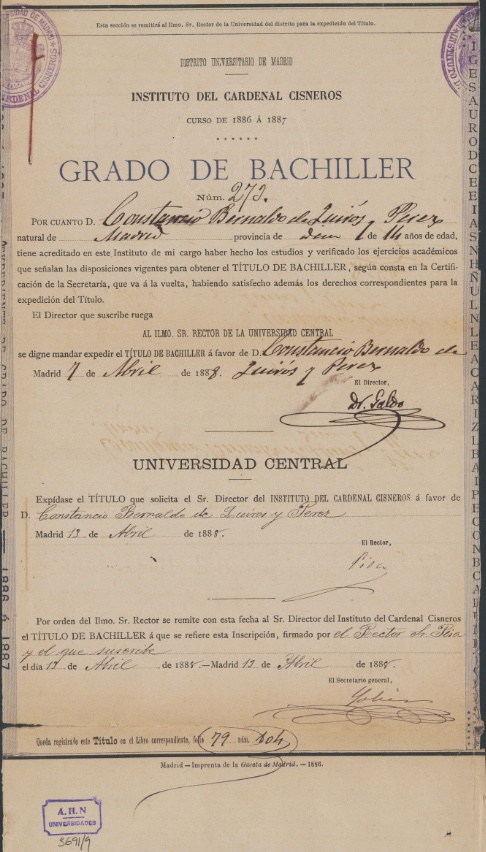 Esta sección se remitirá al Ilmo. Sr. Rector de la Universidad del distrito para la expedición del Título.
DISTRITO UNIVERSITARIO DE MADRID
INSTITUTO DEL CARDENAL CISNEROS
CURSO DE 1886 Á 1887
GRADO DE BACHILLER
Núm. 273.
POR CUANTO D. Constancio Bernaldo de Quirós y Perez
natural de Madrid provincia de Idem de 14 años de edad,
tiene acreditado en este Instituto de mi cargo haber hecho los estudios y verificado los ejercicios académicos
que señalan las disposiciones vigentes para obtener el TÍTULO DE BACHILLER, según consta en la Certifica-
ción de la Secretaría, que va á la vuelta, habiendo satisfecho además los derechos correspondientes para la
expedición del Título.
El Director que suscribe ruega
AL ILMO. SR. RECTOR DE LA UNIVERSIDAD CENTRAL
se digne mandar expedir el TÍTULO DE BACHILLER á favor de D. Constancio Bernaldo de
Madrid 7 de Abril de 1888. Quirós y Perez
El Director,
Dr. Galdo
UNIVERSIDAD CENTRAL
Expídase el TÍTULO que solicita el Sr. Director del INSTITUTO DEL CARDENAL CISNEROS á favor de
D. Constancio Bernaldo de Quiros y Perez
Madrid 13 de Abril de 1888.
El Rector,
Pisa
Por orden del Ilmo. Sr. Rector se remite con esta fecha al Sr. Director del Instituto del Cardenal Cisneros
el TÍTULO DE BACHILLER á que se refiere esta Inscripción, firmado por el Rector Sr. Pisa
y el que suscribe
el día 13 de Abril de 1888.—Madrid 13 de Abril de 1888.
El Secretario general,
Queda registrado este Título en el Libro correspondiente, folio 79 núm. 104
Madrid—Imprenta de la Gaceta de Madrid.—1886.
A.H.N
UNIVERSIDADES
3691/9
CARDENAL CISNEROS
DE BACHILLER — 1886 á 1887